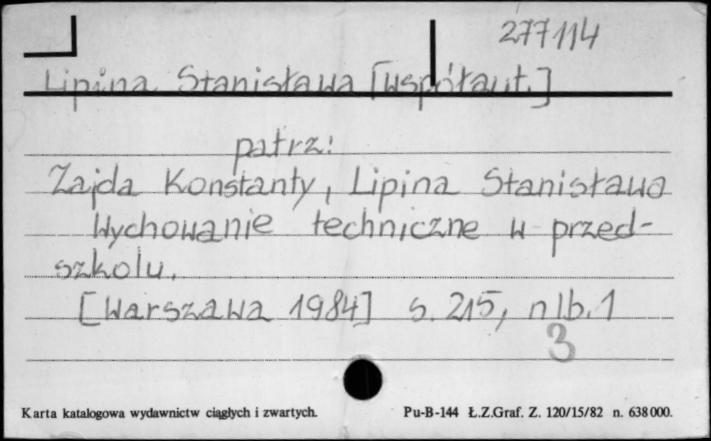 277114
Lipina Stanisława [współaut.]
patrz:
Zajda Konstanty, Lipina Stanisława
Wychowanie techniczne w przed-
szkolu.
[Warszawa 1984] s. 215, nlb. 1
3
Karta katalogowa wydawnictw ciągłych i zwartych. Pu-B-144 Ł.Z.Graf. Z. 120/15/82 n. 638000.